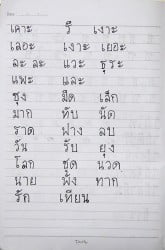 เคาะ รี เงาะ
เลอะ เงาะ เยอะ
ละ ละ แวะ ธุระ
แพะ และ
ซุง มืด เล็ก
มาก ทับ นัด
ราด ฟาง ลบ
วัน รับ ยุง
โลก ชุด นวด
นาย พัง ทาก
รัก เทียน